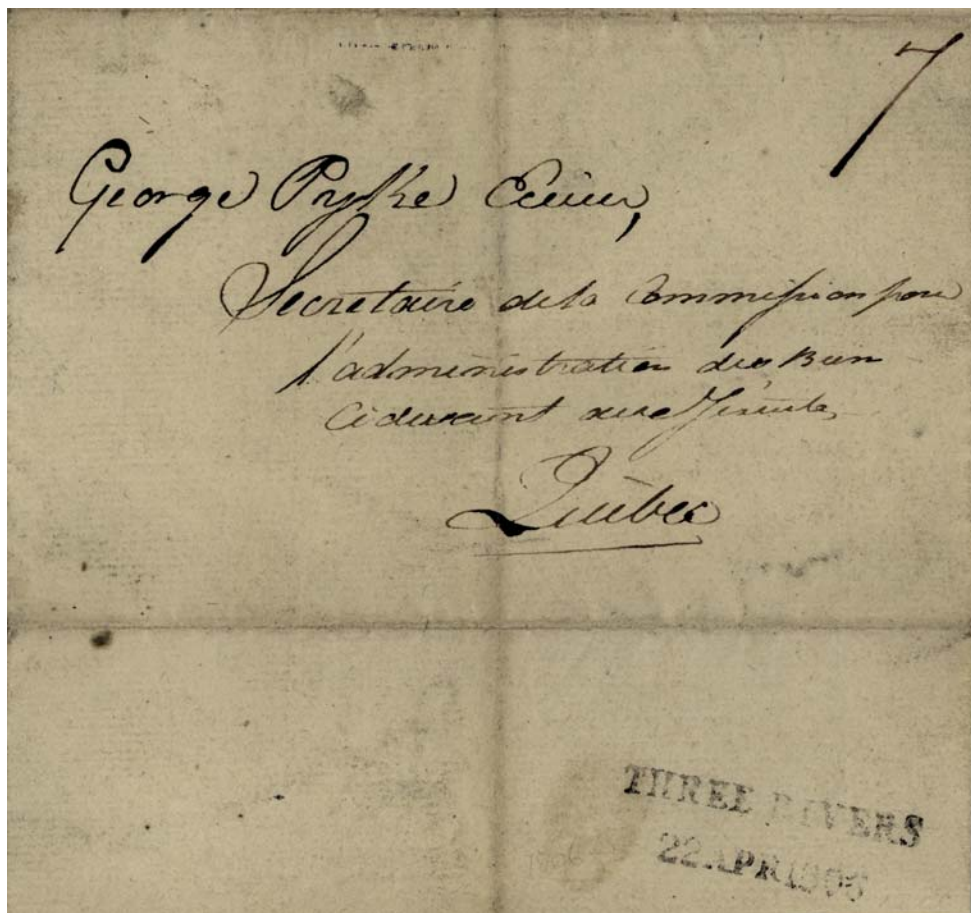 7
George Pyke Ecuier,
Secretaire de la Commission pour
l'administration des Bien
Cidevant des Jesuites
Québec
THREE RIVERS
22 APR